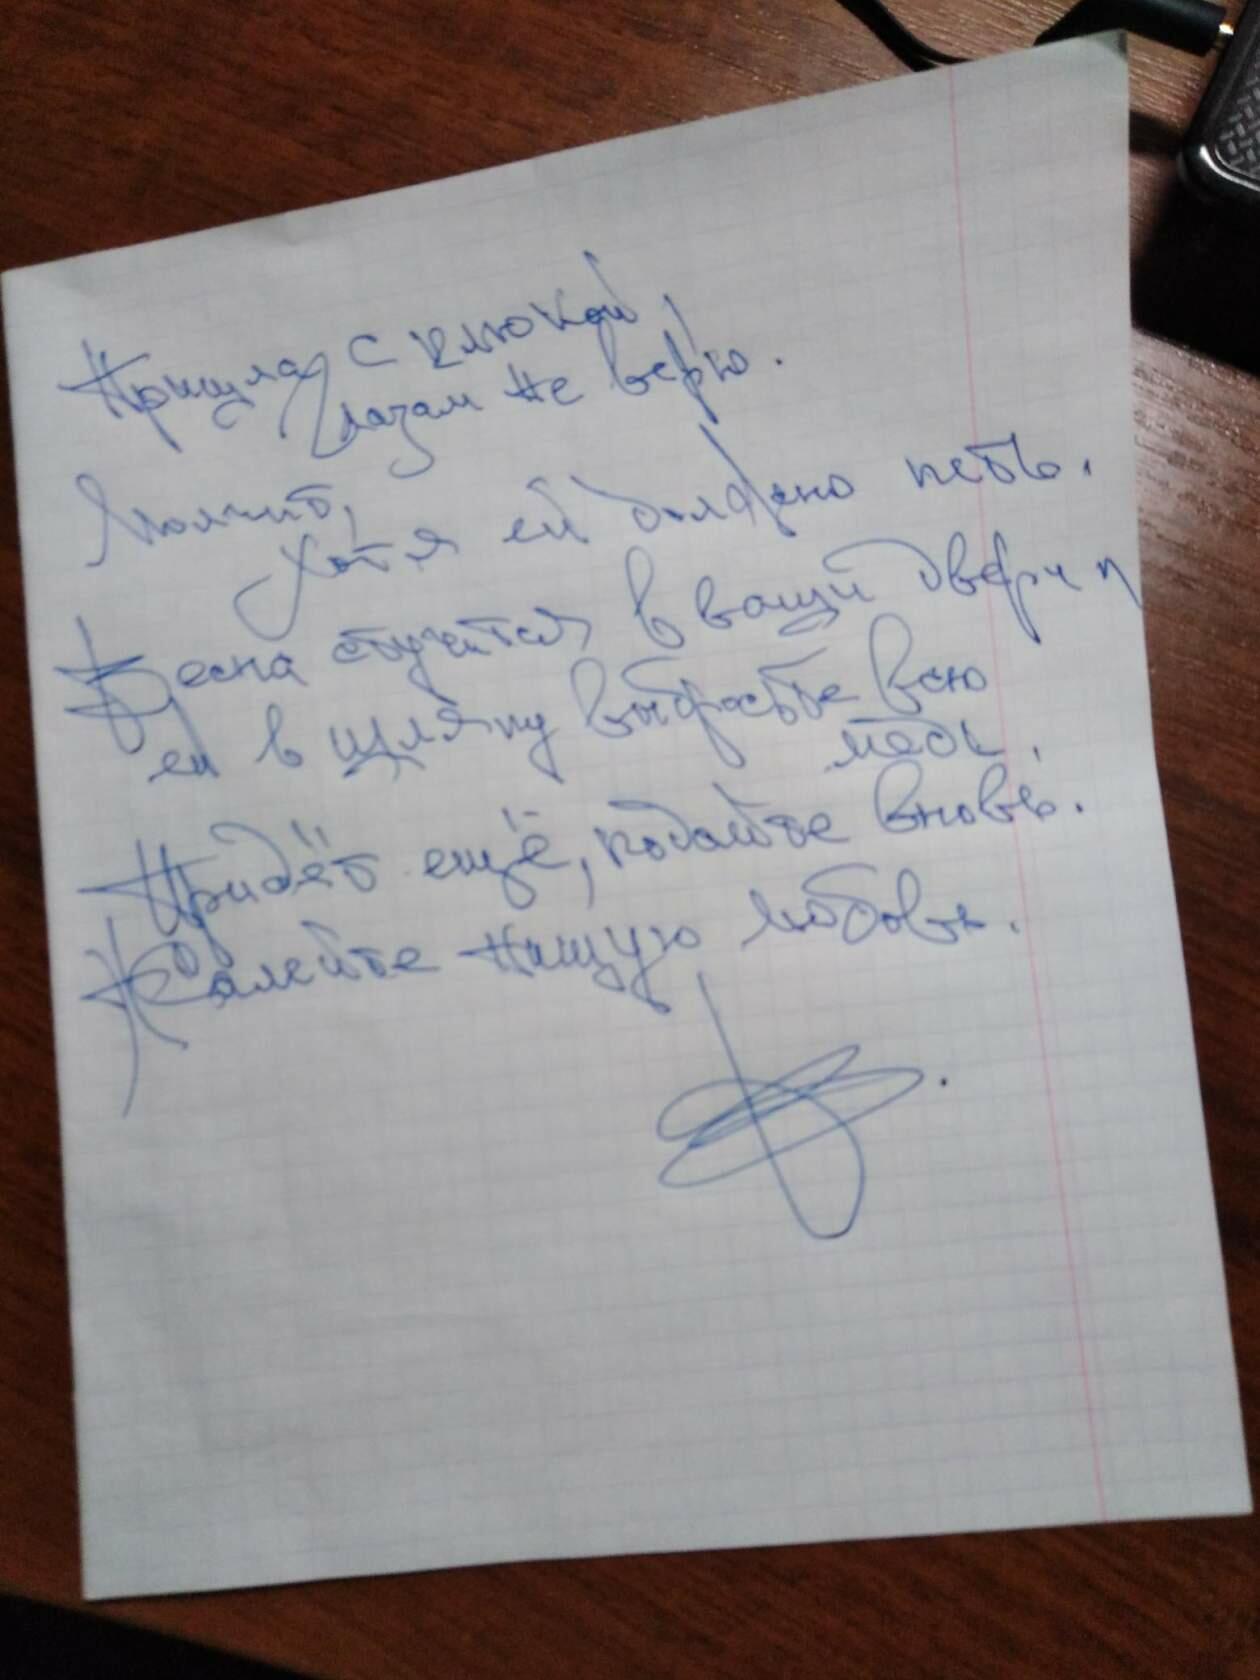 Пришла с клюкой,
глазам не верю.
Молчит,
хотя ей должно петь.
Весна стучится в ваши двери
ей в шляпу выбрасьте всю
медь.
Придёт ещё, подайте вновь.
Жалейте нищую любовь.